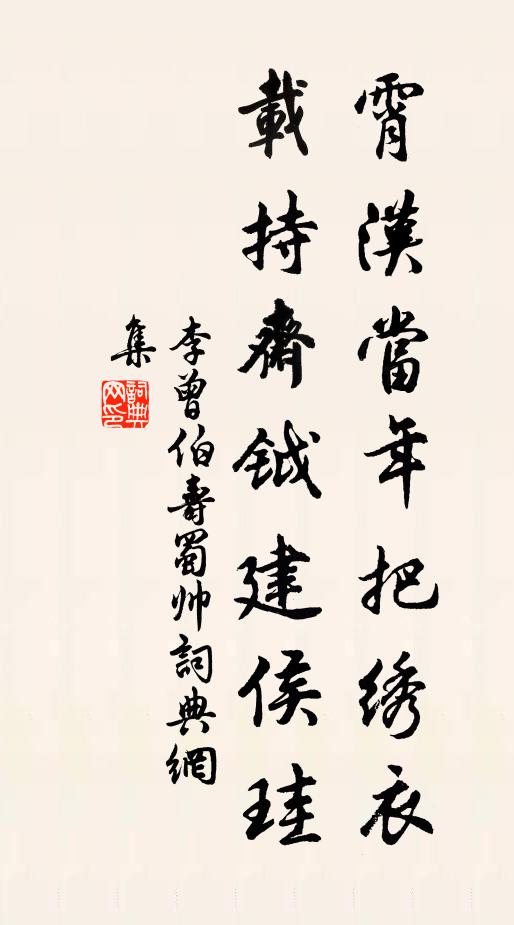 霄漢當年把绣衣
載持齋鉞建侯珪
李曾伯壽蜀帅詞典網
集
詞典网印